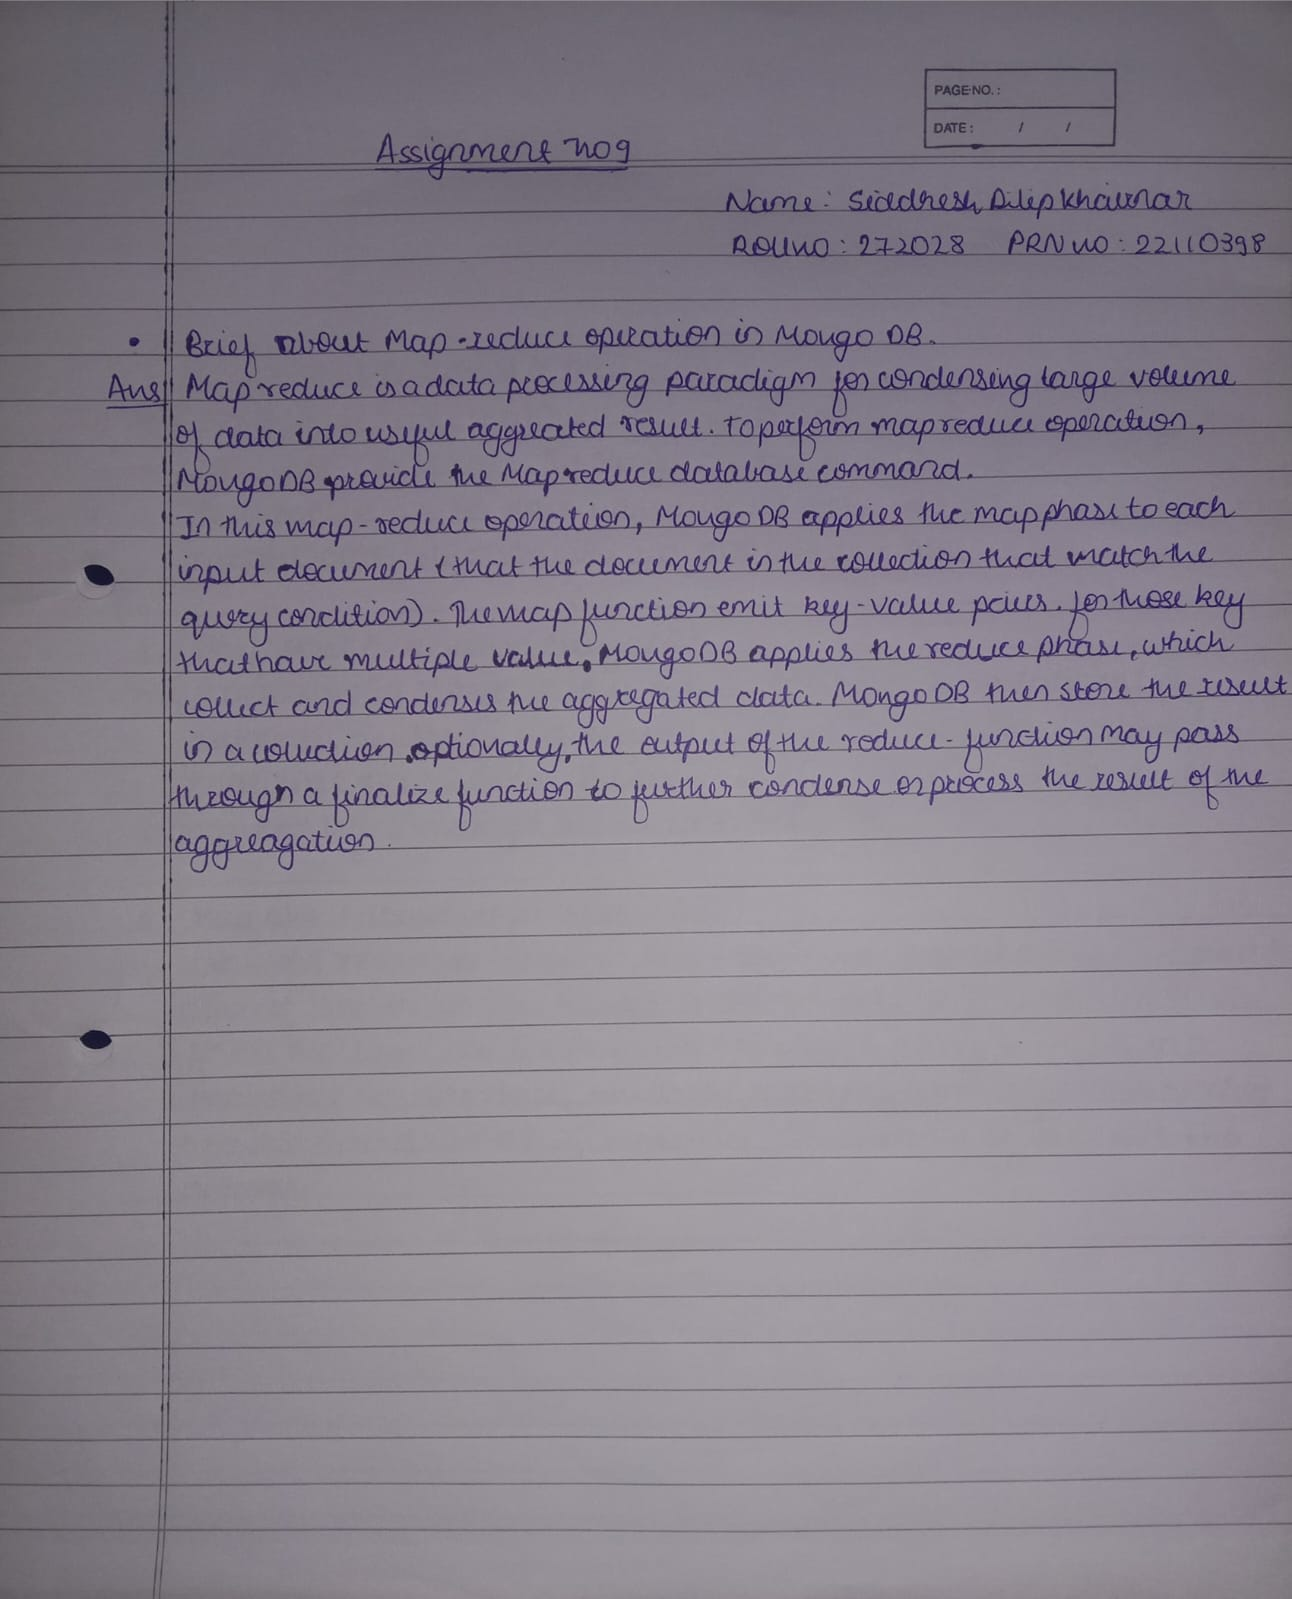 PAGE NO. :
DATE : / /
Assignment no 9
Name : Siddhesh Dilip Khairnar
Roll no : 272028 PRN no : 22110398
• Brief about Map-reduce operation in Mongo DB.
Ans Map reduce is a data processing paradigm for condensing large volume
of data into useful aggreated result. To perform map reduce operation,
MongoDB provide the Map reduce database command.
In this map-reduce operation, MongoDB applies the map phase to each
input document (that the document in the collection that match the
query condition). The map function emit key-value pairs. for those key
that have multiple value, MongoDB applies the reduce phase, which
collect and condenses the aggregated data. MongoDB then store the result
in a collection. optionally, the output of the reduce-function may pass
through a finalize function to further condense or process the result of the
aggreagation.